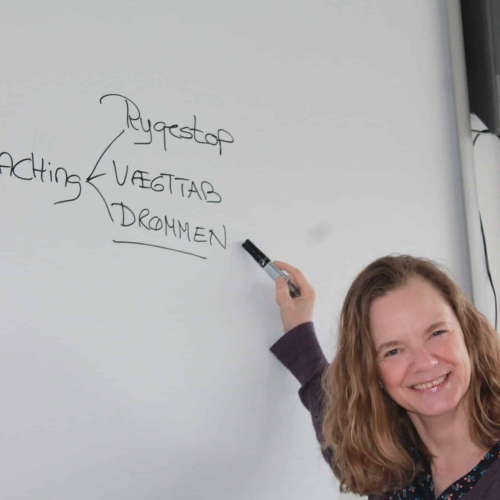 Rygestop
ACHing
VÆGTTAB
DRØMMEN